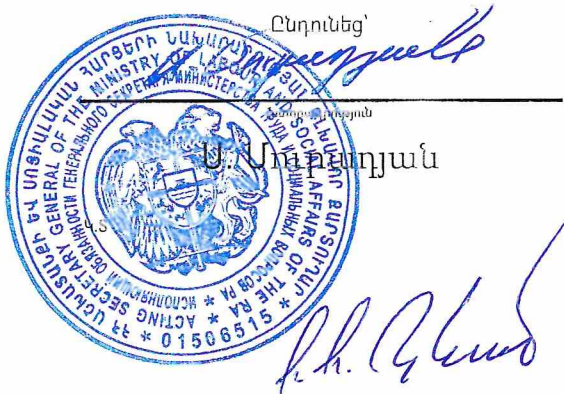 Ընդունեց՝
ստորագրություն
Ս. Մուրադյան
Կ.Տ
ՀՀ ԱՇԽԱՏԱՆՔԻ ԵՎ ՍՈՑԻԱԼԱԿԱՆ ՀԱՐՑԵՐԻ ՆԱԽԱՐԱՐՈՒԹՅԱՆ ԳԼԽԱՎՈՐ ՔԱՐՏՈՒՂԱՐ
ACTING SECRETARY GENERAL OF THE MINISTRY OF LABOUR AND SOCIAL AFFAIRS OF THE RA
ИСПОЛНЯЮЩИЙ ОБЯЗАННОСТИ ГЕНЕРАЛЬНОГО СЕКРЕТАРЯ МИНИСТЕРСТВА ТРУДА И СОЦИАЛЬНЫХ ВОПРОСОВ РА
* 01506515 *